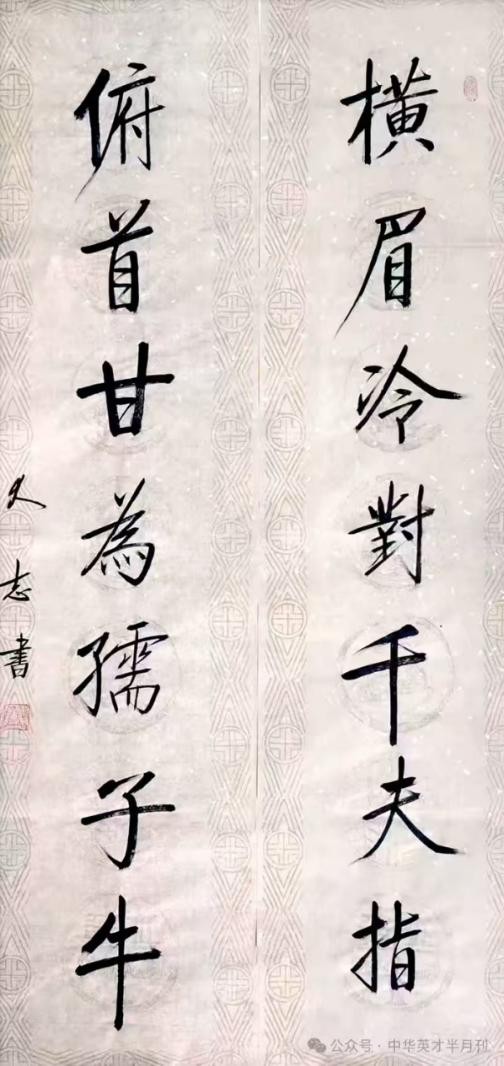 橫眉冷對千夫指
俯首甘為孺子牛
久志書
公众号·中华英才半月刊